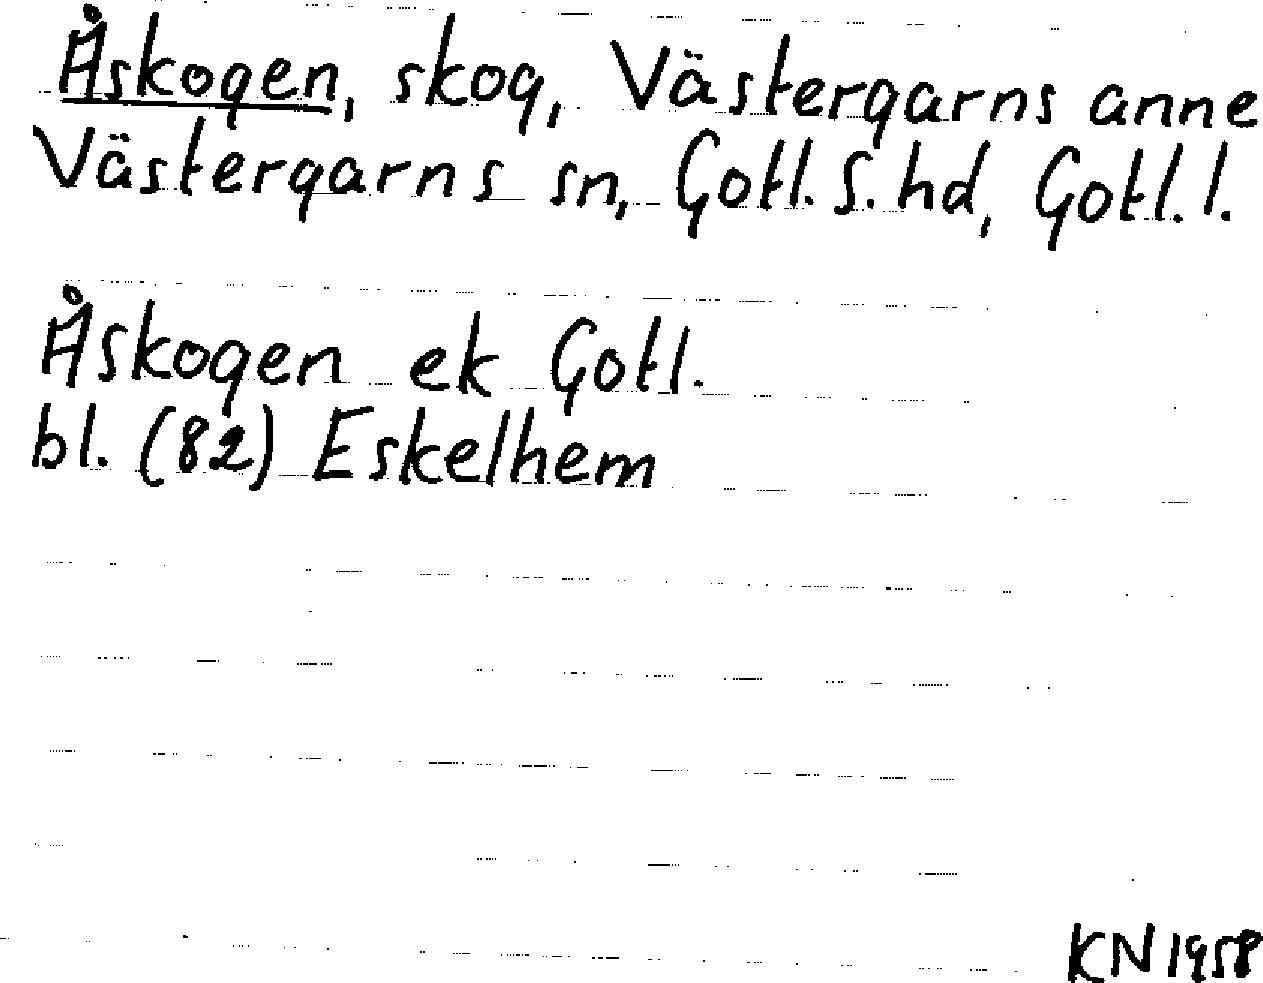 Åskogen, skog, Västergarns anne
Västergarns sn, Gotl. S. hd, Gotl. l.
Åskogen ek Gotl.
bl. (82) Eskelhem
KN 1958